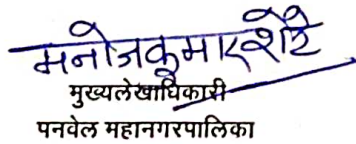 मनोजकुमार शेटे
मुख्यलेखाधिकारी
पनवेल महानगरपालिका